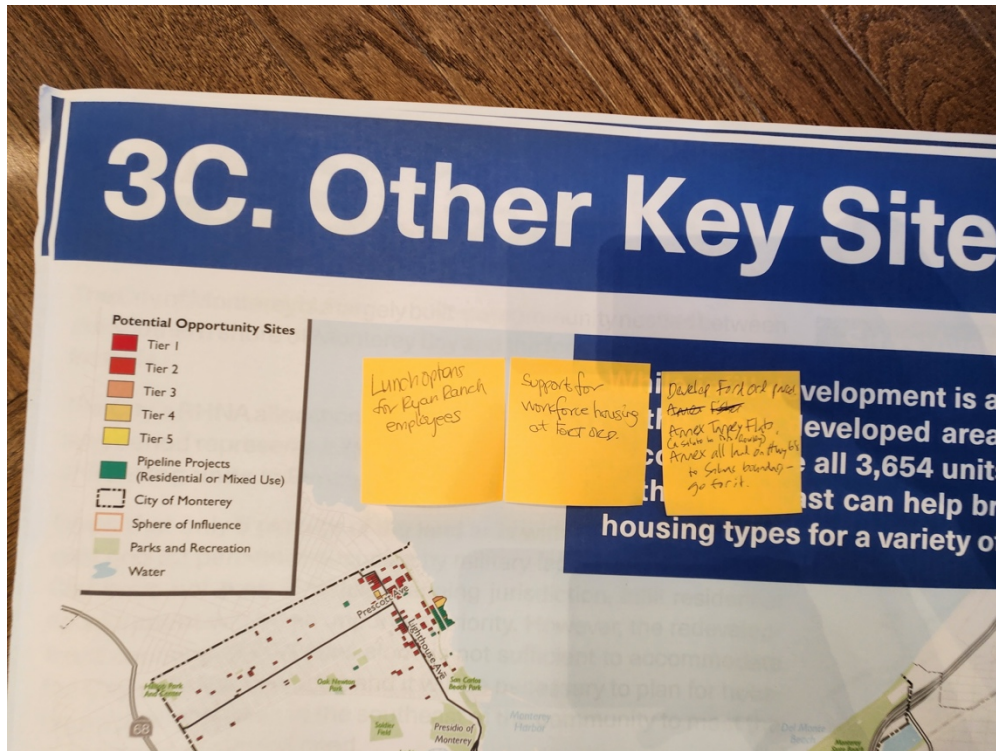 3C. Other Key Site
Potential Opportunity Sites
Tier 1
Tier 2
Tier 3
Tier 4
Tier 5
Pipeline Projects
(Residential or Mixed Use)
City of Monterey
Sphere of Influence
Parks and Recreation
Water
Lunch options
for Ryan Ranch
employees
Support for
workforce housing
at Fort Ord.
Develop Fort Ord prop.
Annex Tarpey Flats,
Annex all land on
to Salinas boundary –
go for it.
velopment is a
developed area
all 3,654 units
ast can help br
housing types for a variety o
Prescott Ave
Lighthouse Ave
Oak Newton
Park
San Carlos
Beach Park
68
Soldier
Field
Presidio of
Monterey
Monterey
Harbor
Del Monte
Beach
Monterey
State Beach